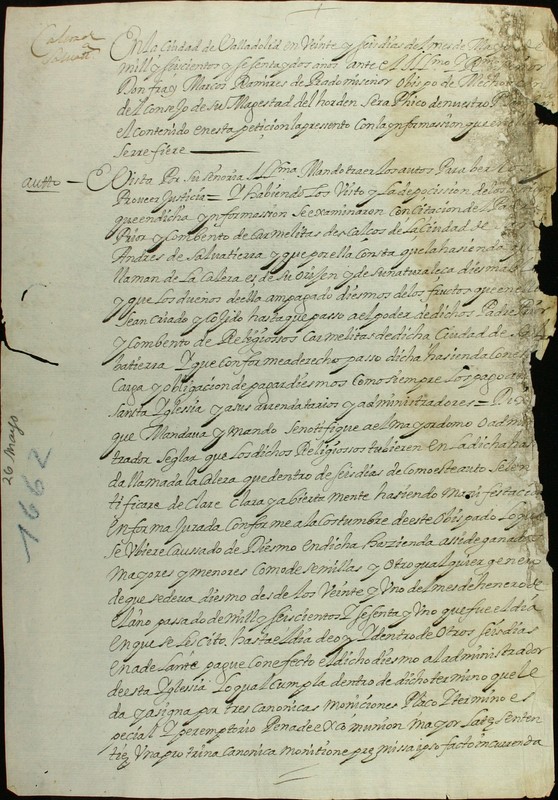 En la Ciudad de Valladolid en Veinte y seis dias del mes de Mayo de
mill y seiscientos y sesenta y dos años ante el Ill.mo y R.mo
Don fray Marcos Ramires de Prado mi señor Obispo de Mechoacan
del Consejo de su Magestad del horden Seraphico de nuestro P
el Contenido en esta peticion la presento Con la ynformassion que en
Se rrefiere
autto
Visto Por Su Señoria Ill.ma Mando traer los autos Para ber
Proveer Justicia = Y habiendo Los Visto y La deposission de los
que en dicha ynformassion Se examinaron Con Citacion del Padre
Prior y Combento de Carmelitas descalços de la Ciudad de S
Andres de Salvatierra y que por ella Consta que la hasienda q
llaman de La Calera es de su Origen y de Su naturaleça diesmal
y que Los dueños de ella an pagado diesmos de los fructos que en
Sean Criado y Cojido hasta que passo a el poder de dichos Padre Prior
y Combento de Religiossos Carmelitas de dicha Ciudad de Sal
batierra Y que Conforme a derecho passo dicha hasienda Con es
Carga y obligacion de pagar diesmos Como siempre Los pago a
Sancta Yglesia y a sus arrendatarios y administradores =
que Mandava y mando Se notifique a el mayordomo O admi
trador Seglar que Los dichos Religiossos tubieren en La dicha has
da llamada la Calera que dentro de seis dias de Como este auto Se le n
tificare declare Clara y abierta mente hasiendo Manifestacion
en forma Jurada Conforme a la Costumbre de este Obispado Lo que
Se Ubiere Caussado de Diesmo en dicha Hazienda assi de ganados
mayores y menores Como de semillas y Otro qualquier genero
de que se deva diesmo desde los Veinte y Uno del mes de henero de
el año passado de mill y seiscientos Y sesenta y Uno que fue el dia
en que se Les Cito, hasta el dia de oy Y dentro de Otros seis dias
en adelante pague Con efecto el dicho diesmo al administrador
de esta Yglesia Lo qual Cumpla dentro de dicho termino que le
da y asigna por tres Canonicas moniciones Plaço Y termino es
pecial Y peremptorio Pena de excomunion mayor Latæ senten
tiæ Una pro trina Canonica monitione præmissa ipso facto incurrenda
26 Mayo
1662